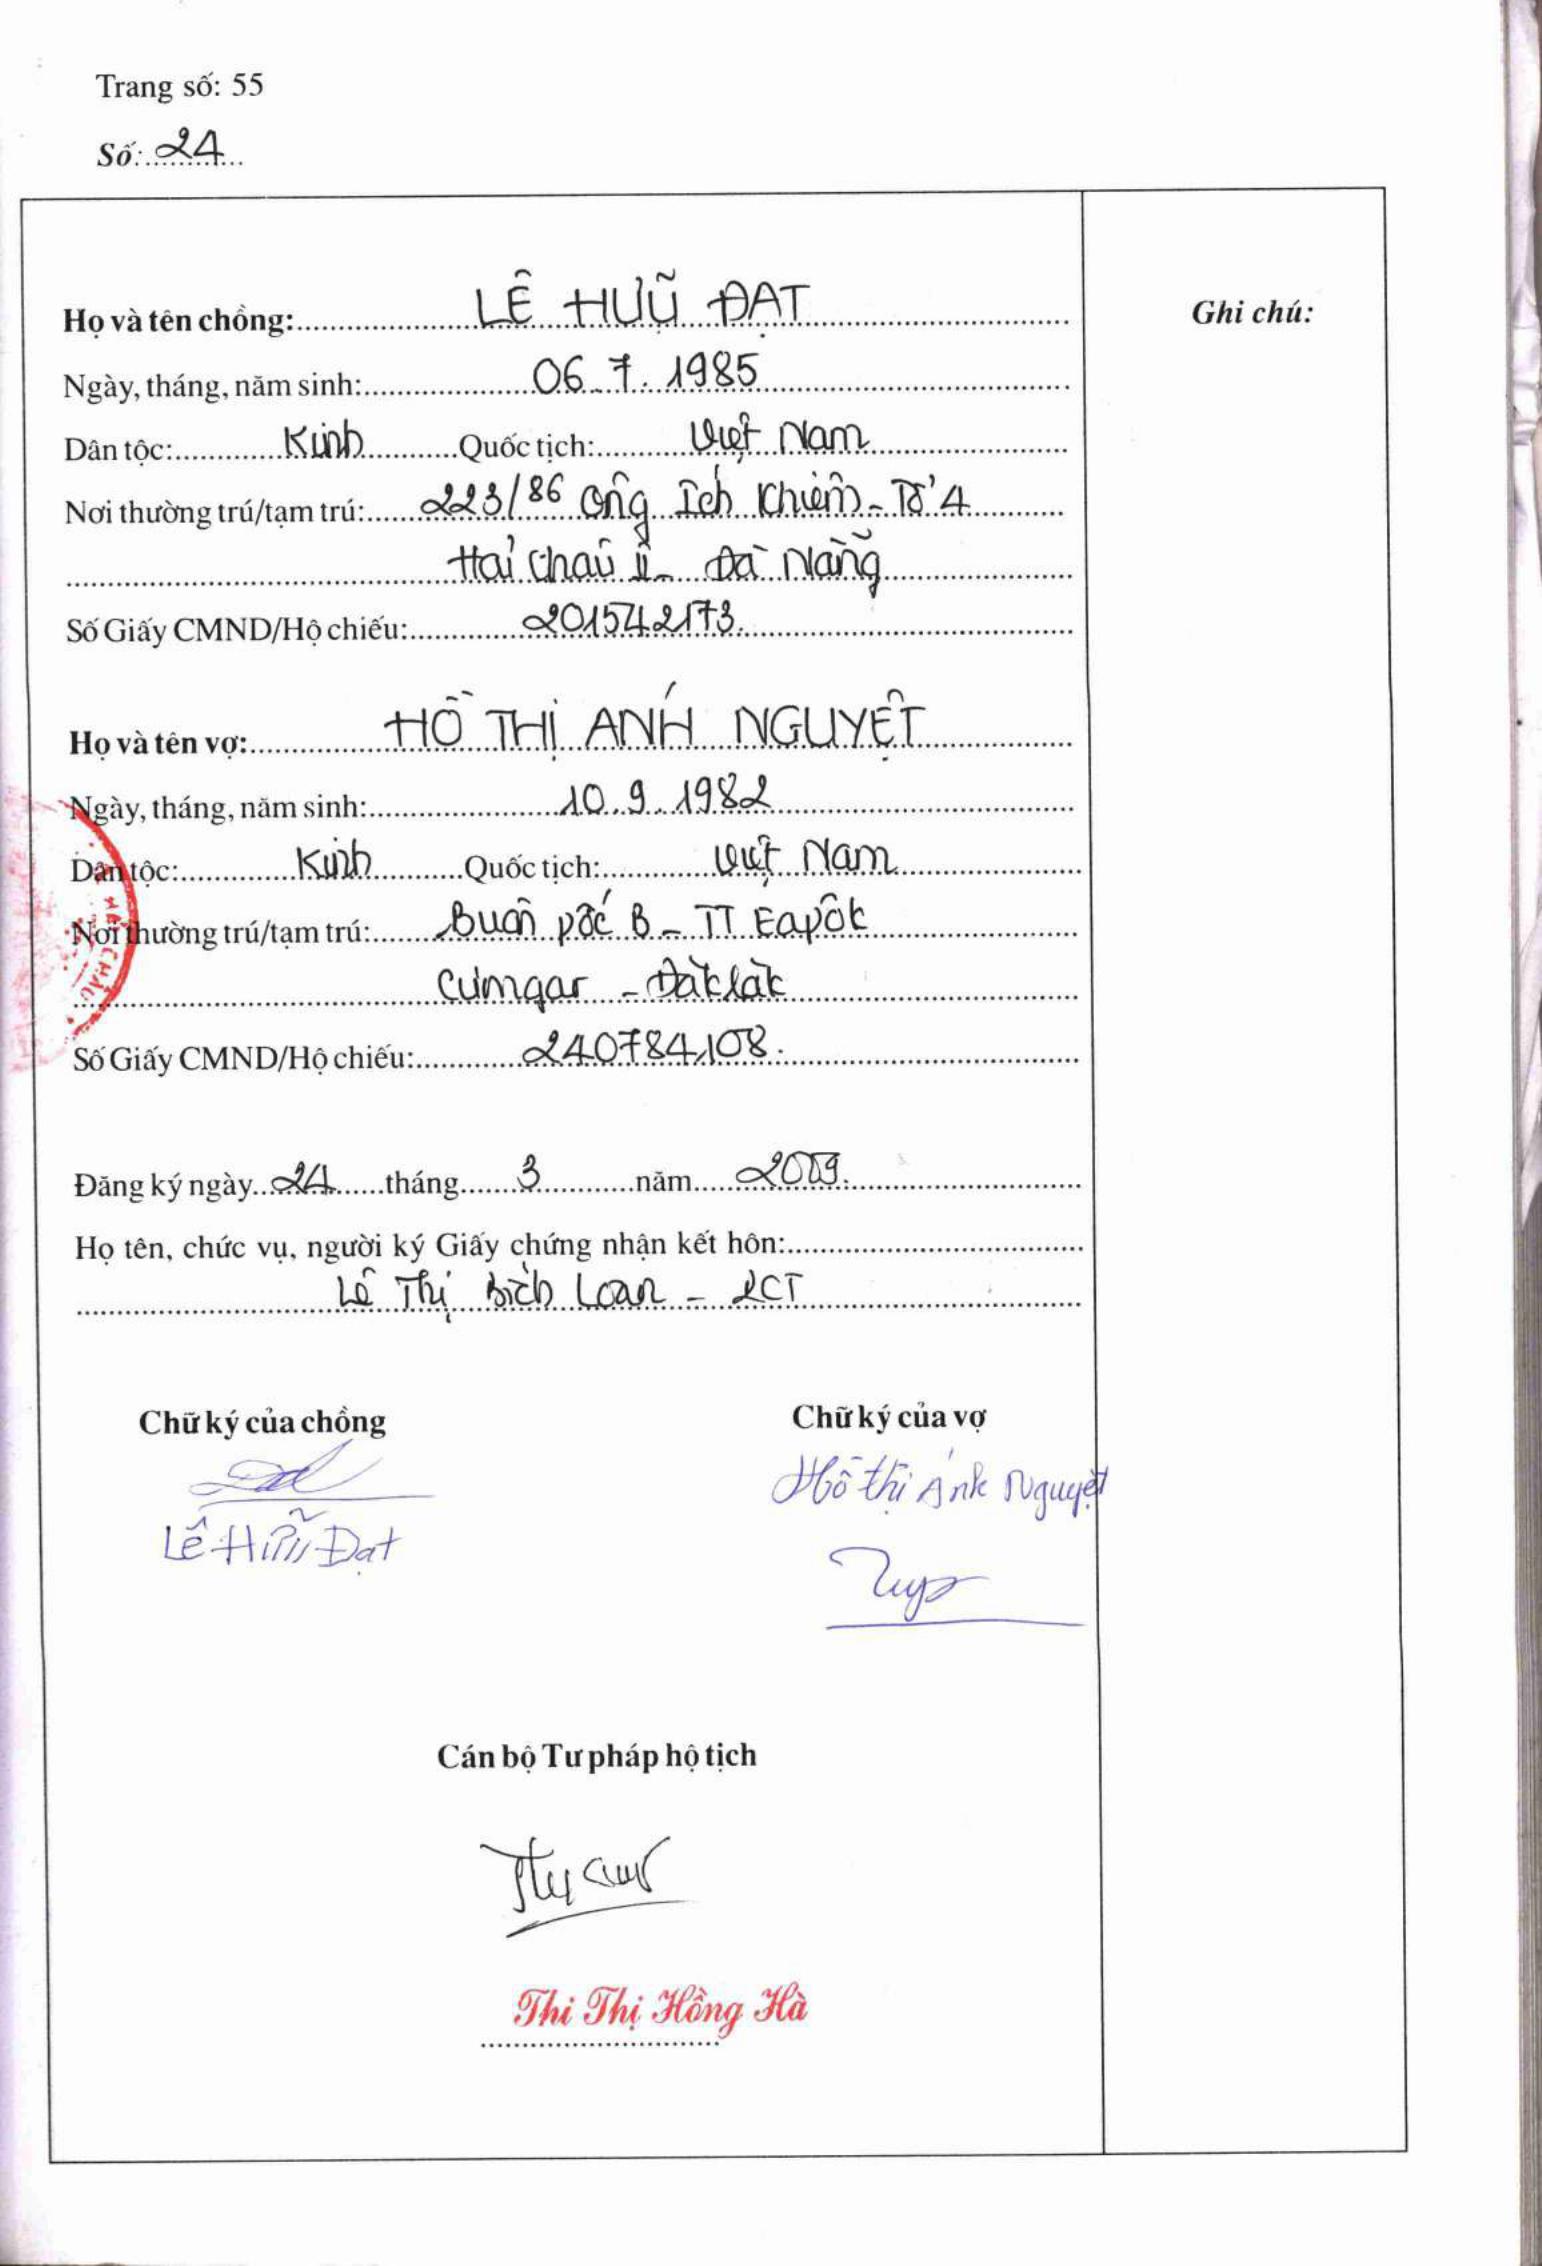 Trang số: 55
Số: 24
Họ và tên chồng: LÊ HƯŨ ĐẠT
Ghi chú:
Ngày, tháng, năm sinh: 06.7.1985
Dân tộc: Kinh Quốc tịch: Việt Nam
Nơi thường trú/tạm trú: 223/86 Ông Ích Khiêm - Tổ 4
Hải Châu II - Đà Nẵng
Số Giấy CMND/Hộ chiếu: 201542173.
Họ và tên vợ: HỒ THỊ ÁNH NGUYỆT
Ngày, tháng, năm sinh: 10.9.1982
Dân tộc: Kinh Quốc tịch: Việt Nam
Nơi thường trú/tạm trú: Buôn pốc B - TT Eapôk
Cưmgar - Đăklăk
Số Giấy CMND/Hộ chiếu: 240784108.
HẢI CHÂU
Đăng ký ngày 24 tháng 3 năm 2009.
Họ tên, chức vụ, người ký Giấy chứng nhận kết hôn:
Lê Thị Bích Loan - PCT
Chữ ký của chồng Chữ ký của vợ
Lê Hữu Đạt
Hồ Thị Ánh Nguyệt
Cán bộ Tư pháp hộ tịch
Thi Thị Hồng Hà